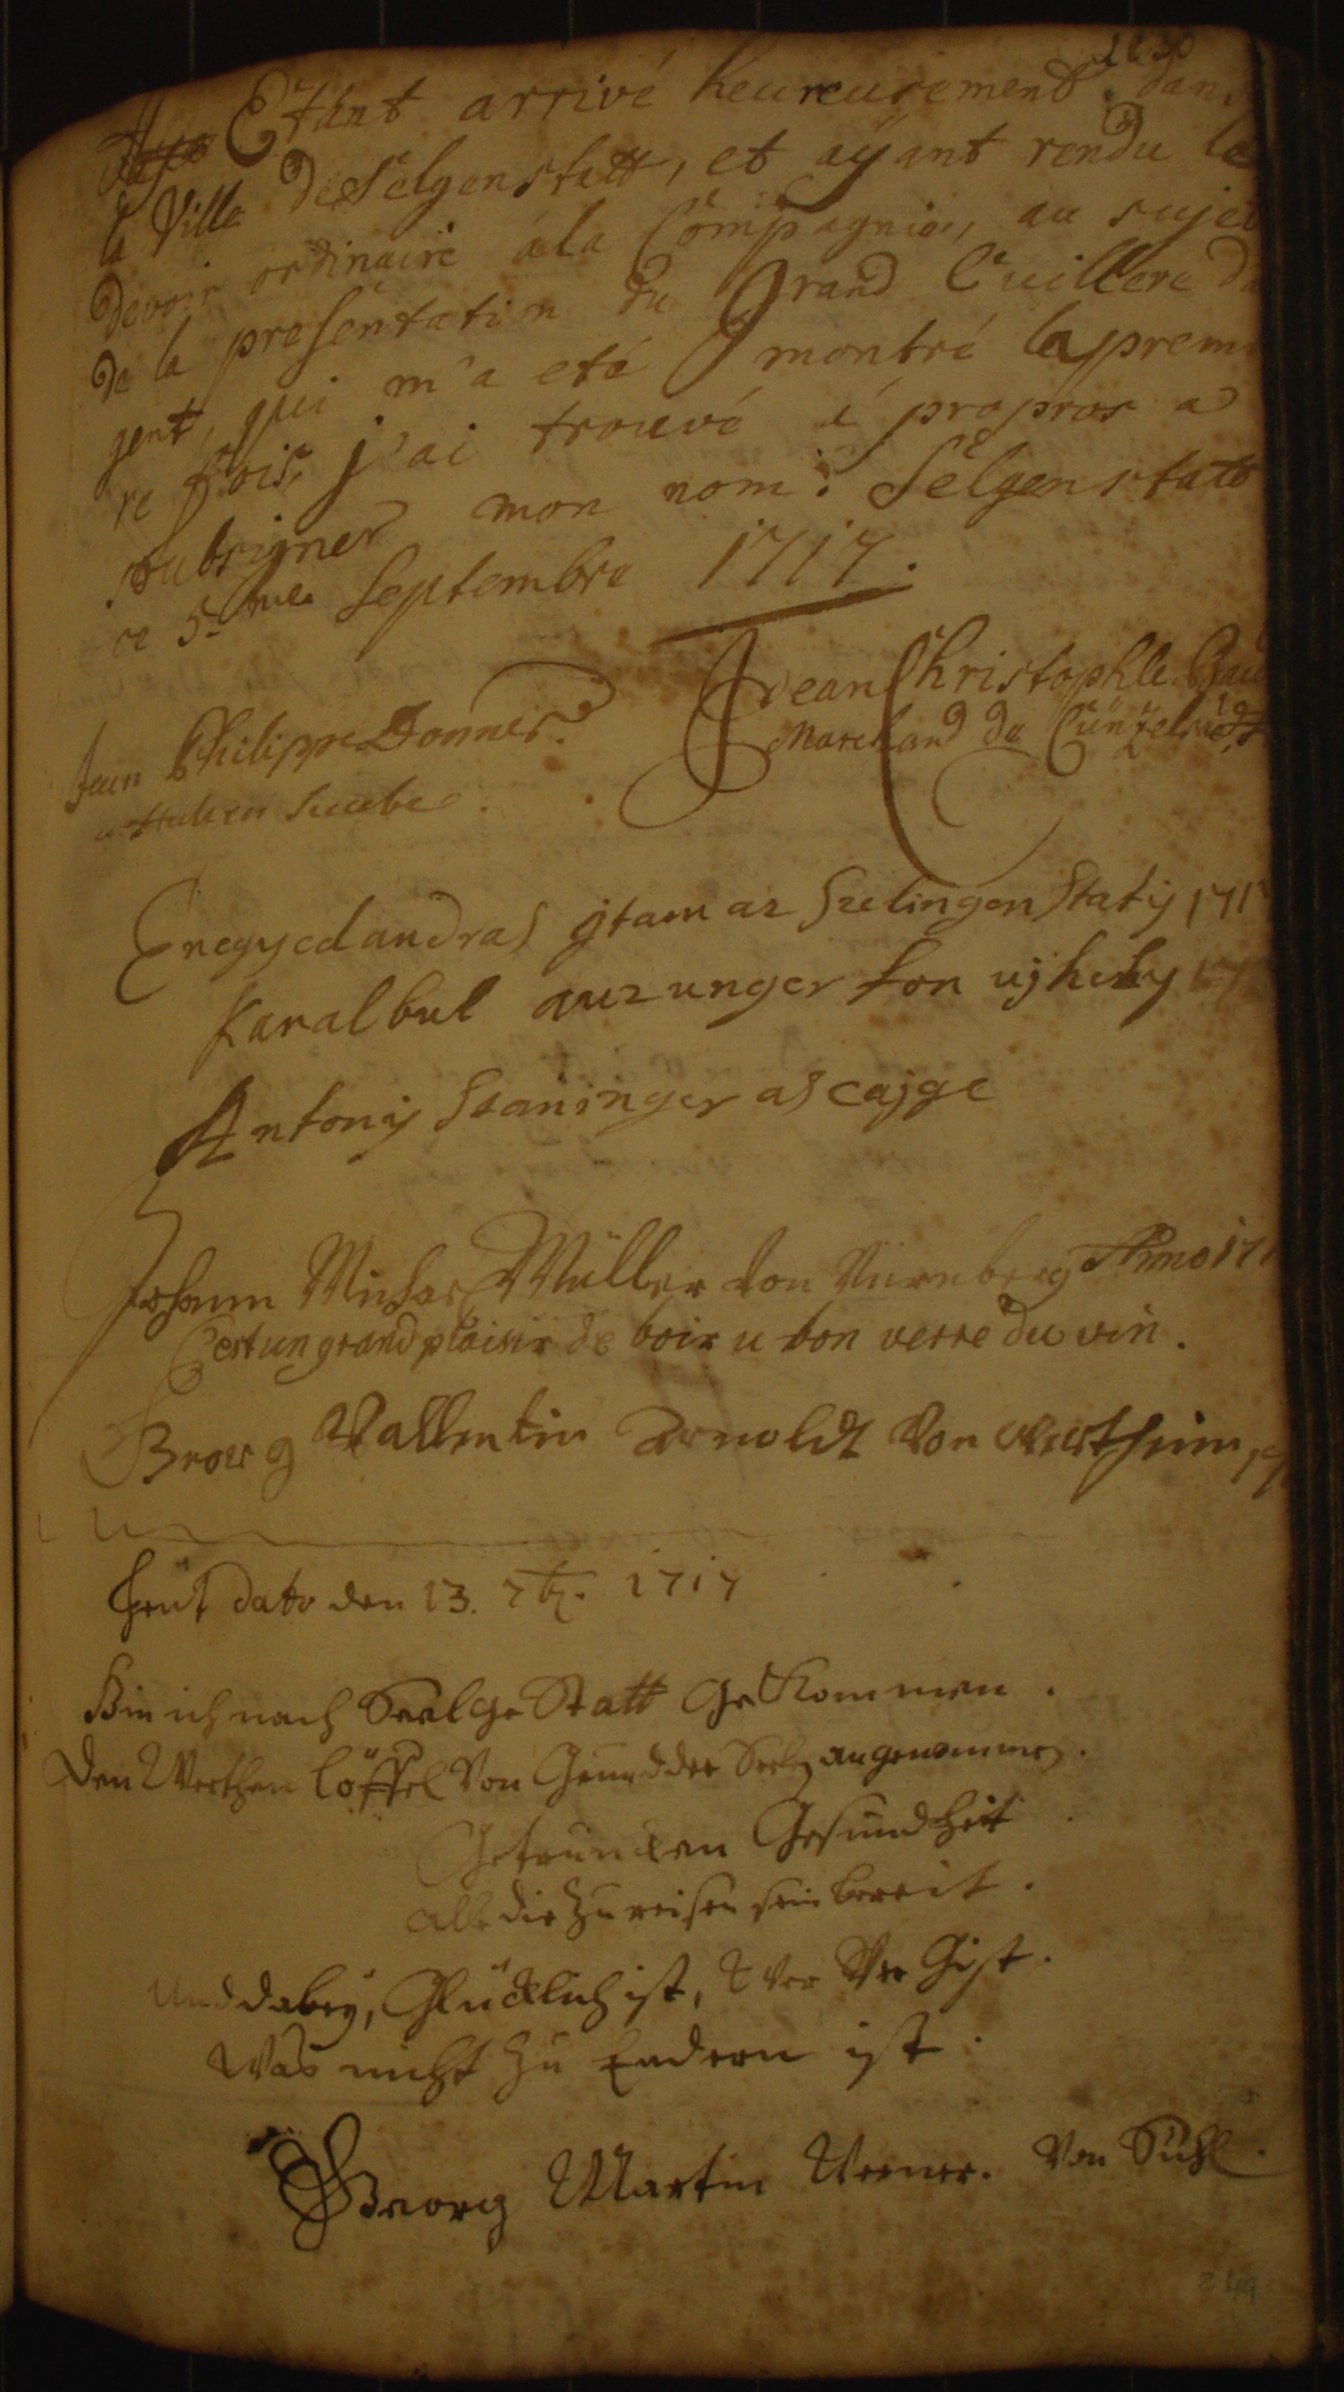 Etant arrivé heureusement dans
la Ville de Selgenstatt, et aÿant rendu le
devoir ordinaire a la Compagnie, au sujet
de la presentation du Grand Cuillere d'a
gent, qui m'a eté montré la premi
re fois, j'ai trouvé é propros a
soubsigner mon nom. Selgenstatt
ce 5me Septembre 1717.
Jean Christophle
Marchand de Cünzelsau
Jean Philippe Donner
Enegyedandras jtam az Szelingenstatÿ 171
Kanalbul auz unger fon ujhely
Antoniÿ Staininger as cajge
Johann Michael Müller von Nürnberg Anno 171
C'est un grand plaisir de boir u bon verre du vin.
Georg Vallentin Arnoldt Von Wertheim
Heut dato den 13. 7br. 1717
Bin ich nach Seelge Statt Gekommen.
Den Werthen löffel Von Grund der Seelen angenommen.
Getruncken Gesundheit
alle die zu reisen sein bereit.
Und dabeÿ, Glücklich ist, Wer Ver Gist.
Was nicht zu Endern ist.
Georg Martin Werner. Von Suhl.
249